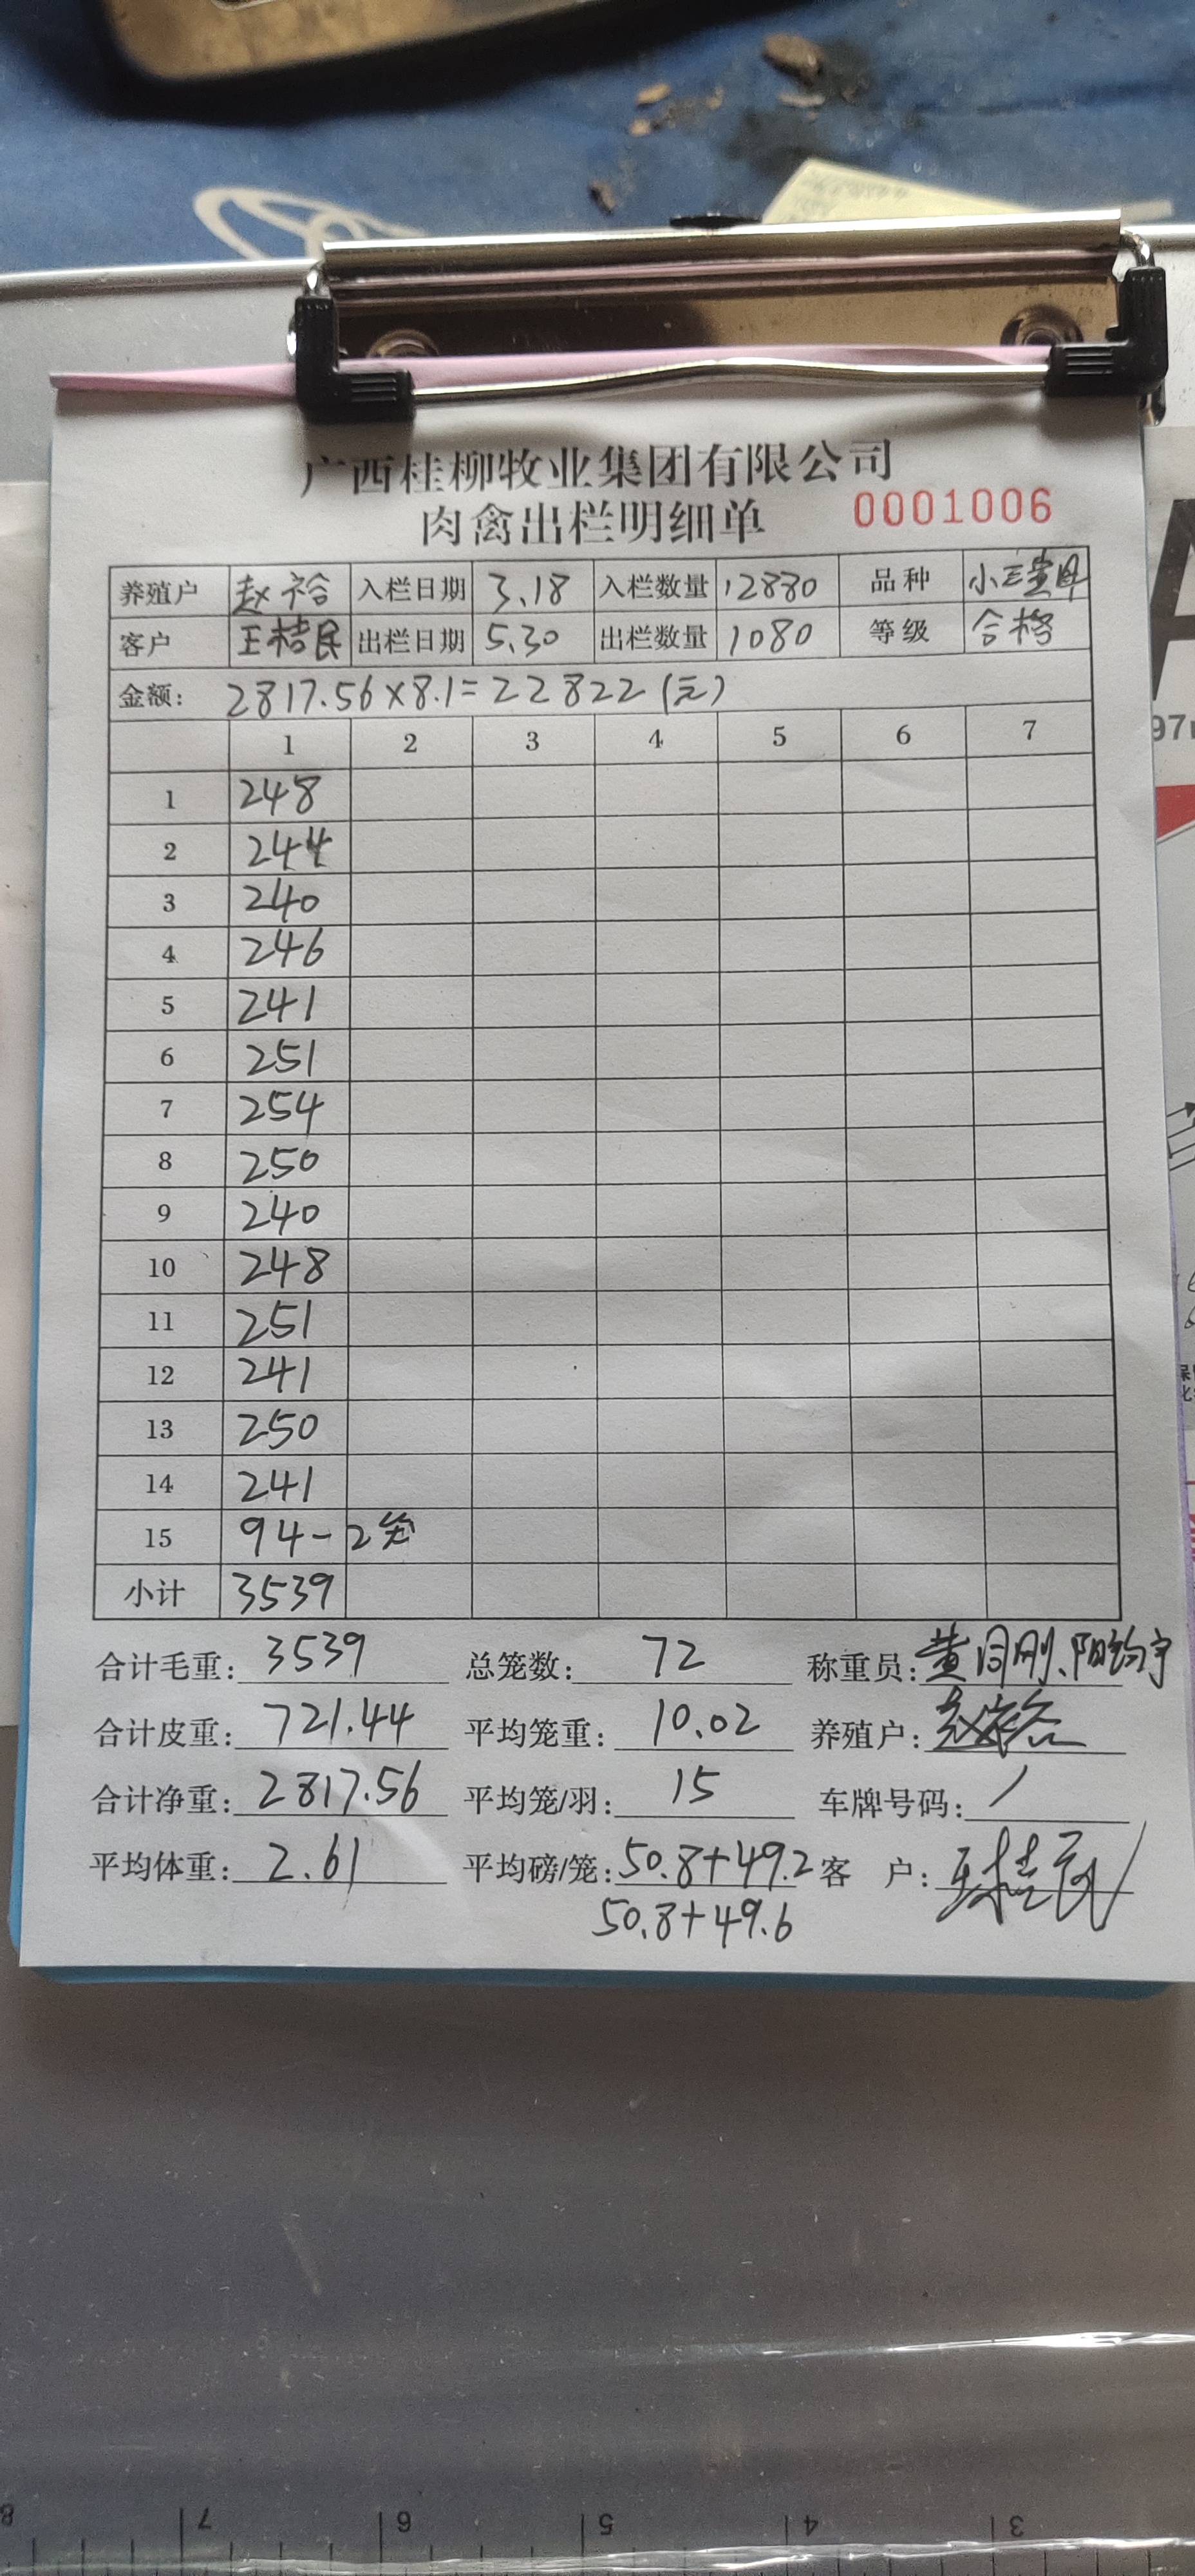 广西桂柳牧业集团有限公司
肉禽出栏明细单 0001006
养殖户 赵裕 入栏日期 3.18 入栏数量 12880 品种 小三黄
客户 王桂民 出栏日期 5.30 出栏数量 1080 等级 合格
金额: 2817.56×8.1=22822(元)
1 2 3 4 5 6 7
1 248
2 244
3 240
4 246
5 241
6 251
7 254
8 250
9 240
10 248
11 251
12 241
13 250
14 241
15 94-2笼
小计 3539
合计毛重: 3539 总笼数: 72 称重员:
合计皮重: 721.44 平均笼重: 10.02 养殖户: 赵裕
合计净重: 2817.56 平均笼/羽: 15 车牌号码: /
平均体重: 2.61 平均磅/笼: 50.8+49.2 客 户: 王桂民
50.8+49.6
97
8 7 6 5 4 3